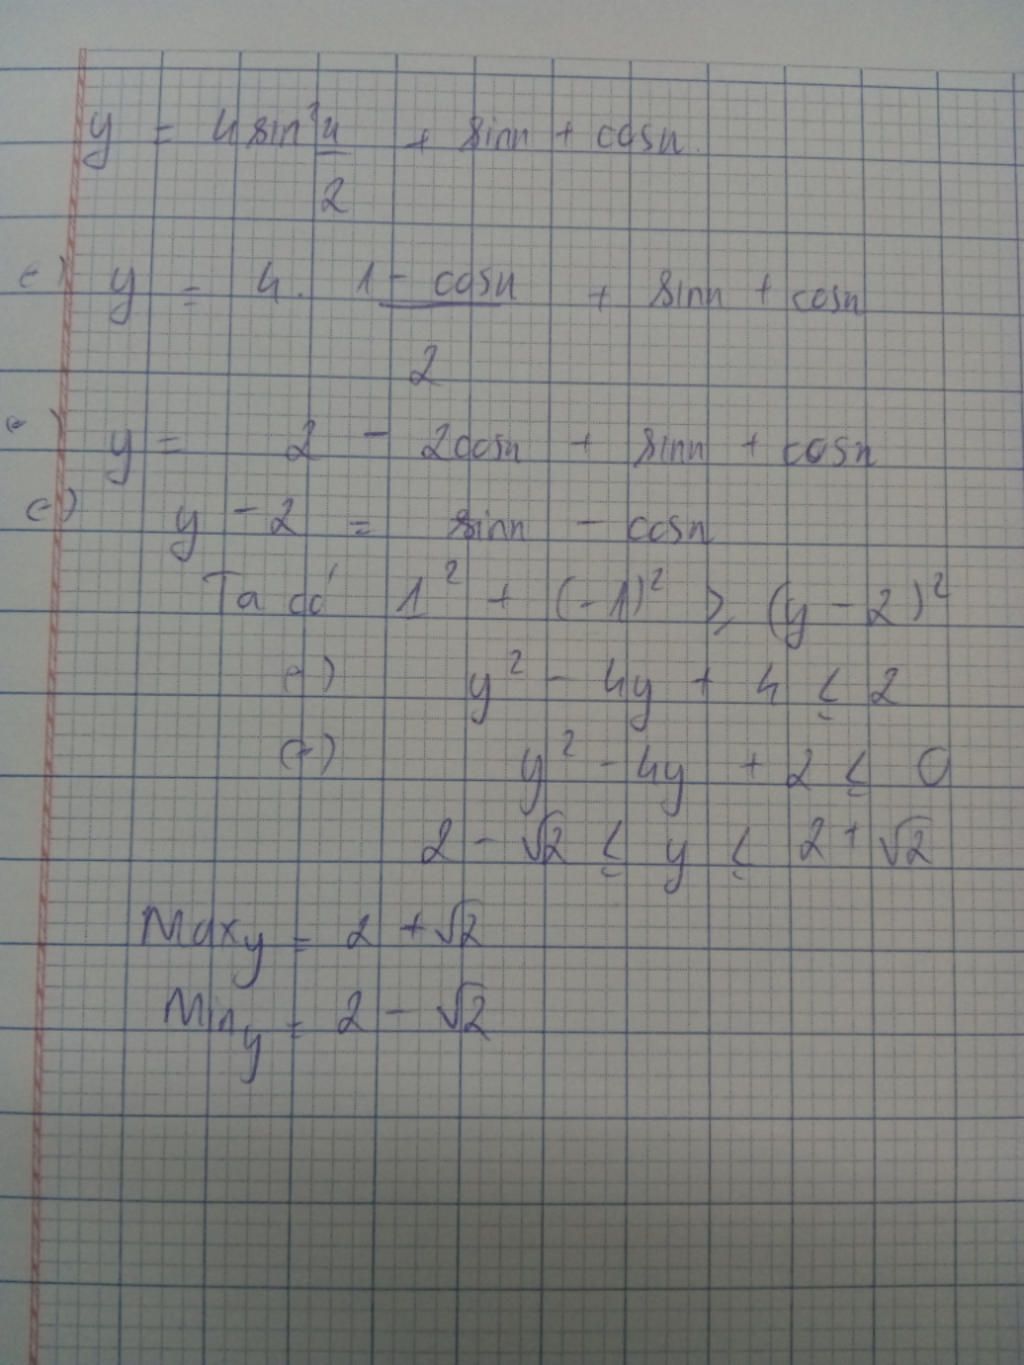 y = 4 sin² x/2 + sinx + cosx.
(=) y = 4. 1 - cosx / 2 + sinx + cosx
(=) y = 2 - 2cosx + sinx + cosx
(=) y - 2 = sinx - cosx
Ta có 1² + (-1)² ≥ (y - 2)²
(=) y² - 4y + 4 ≤ 2
(=) y² - 4y + 2 ≤ 0
2 - √2 ≤ y ≤ 2 + √2
Max y = 2 + √2
Min y = 2 - √2